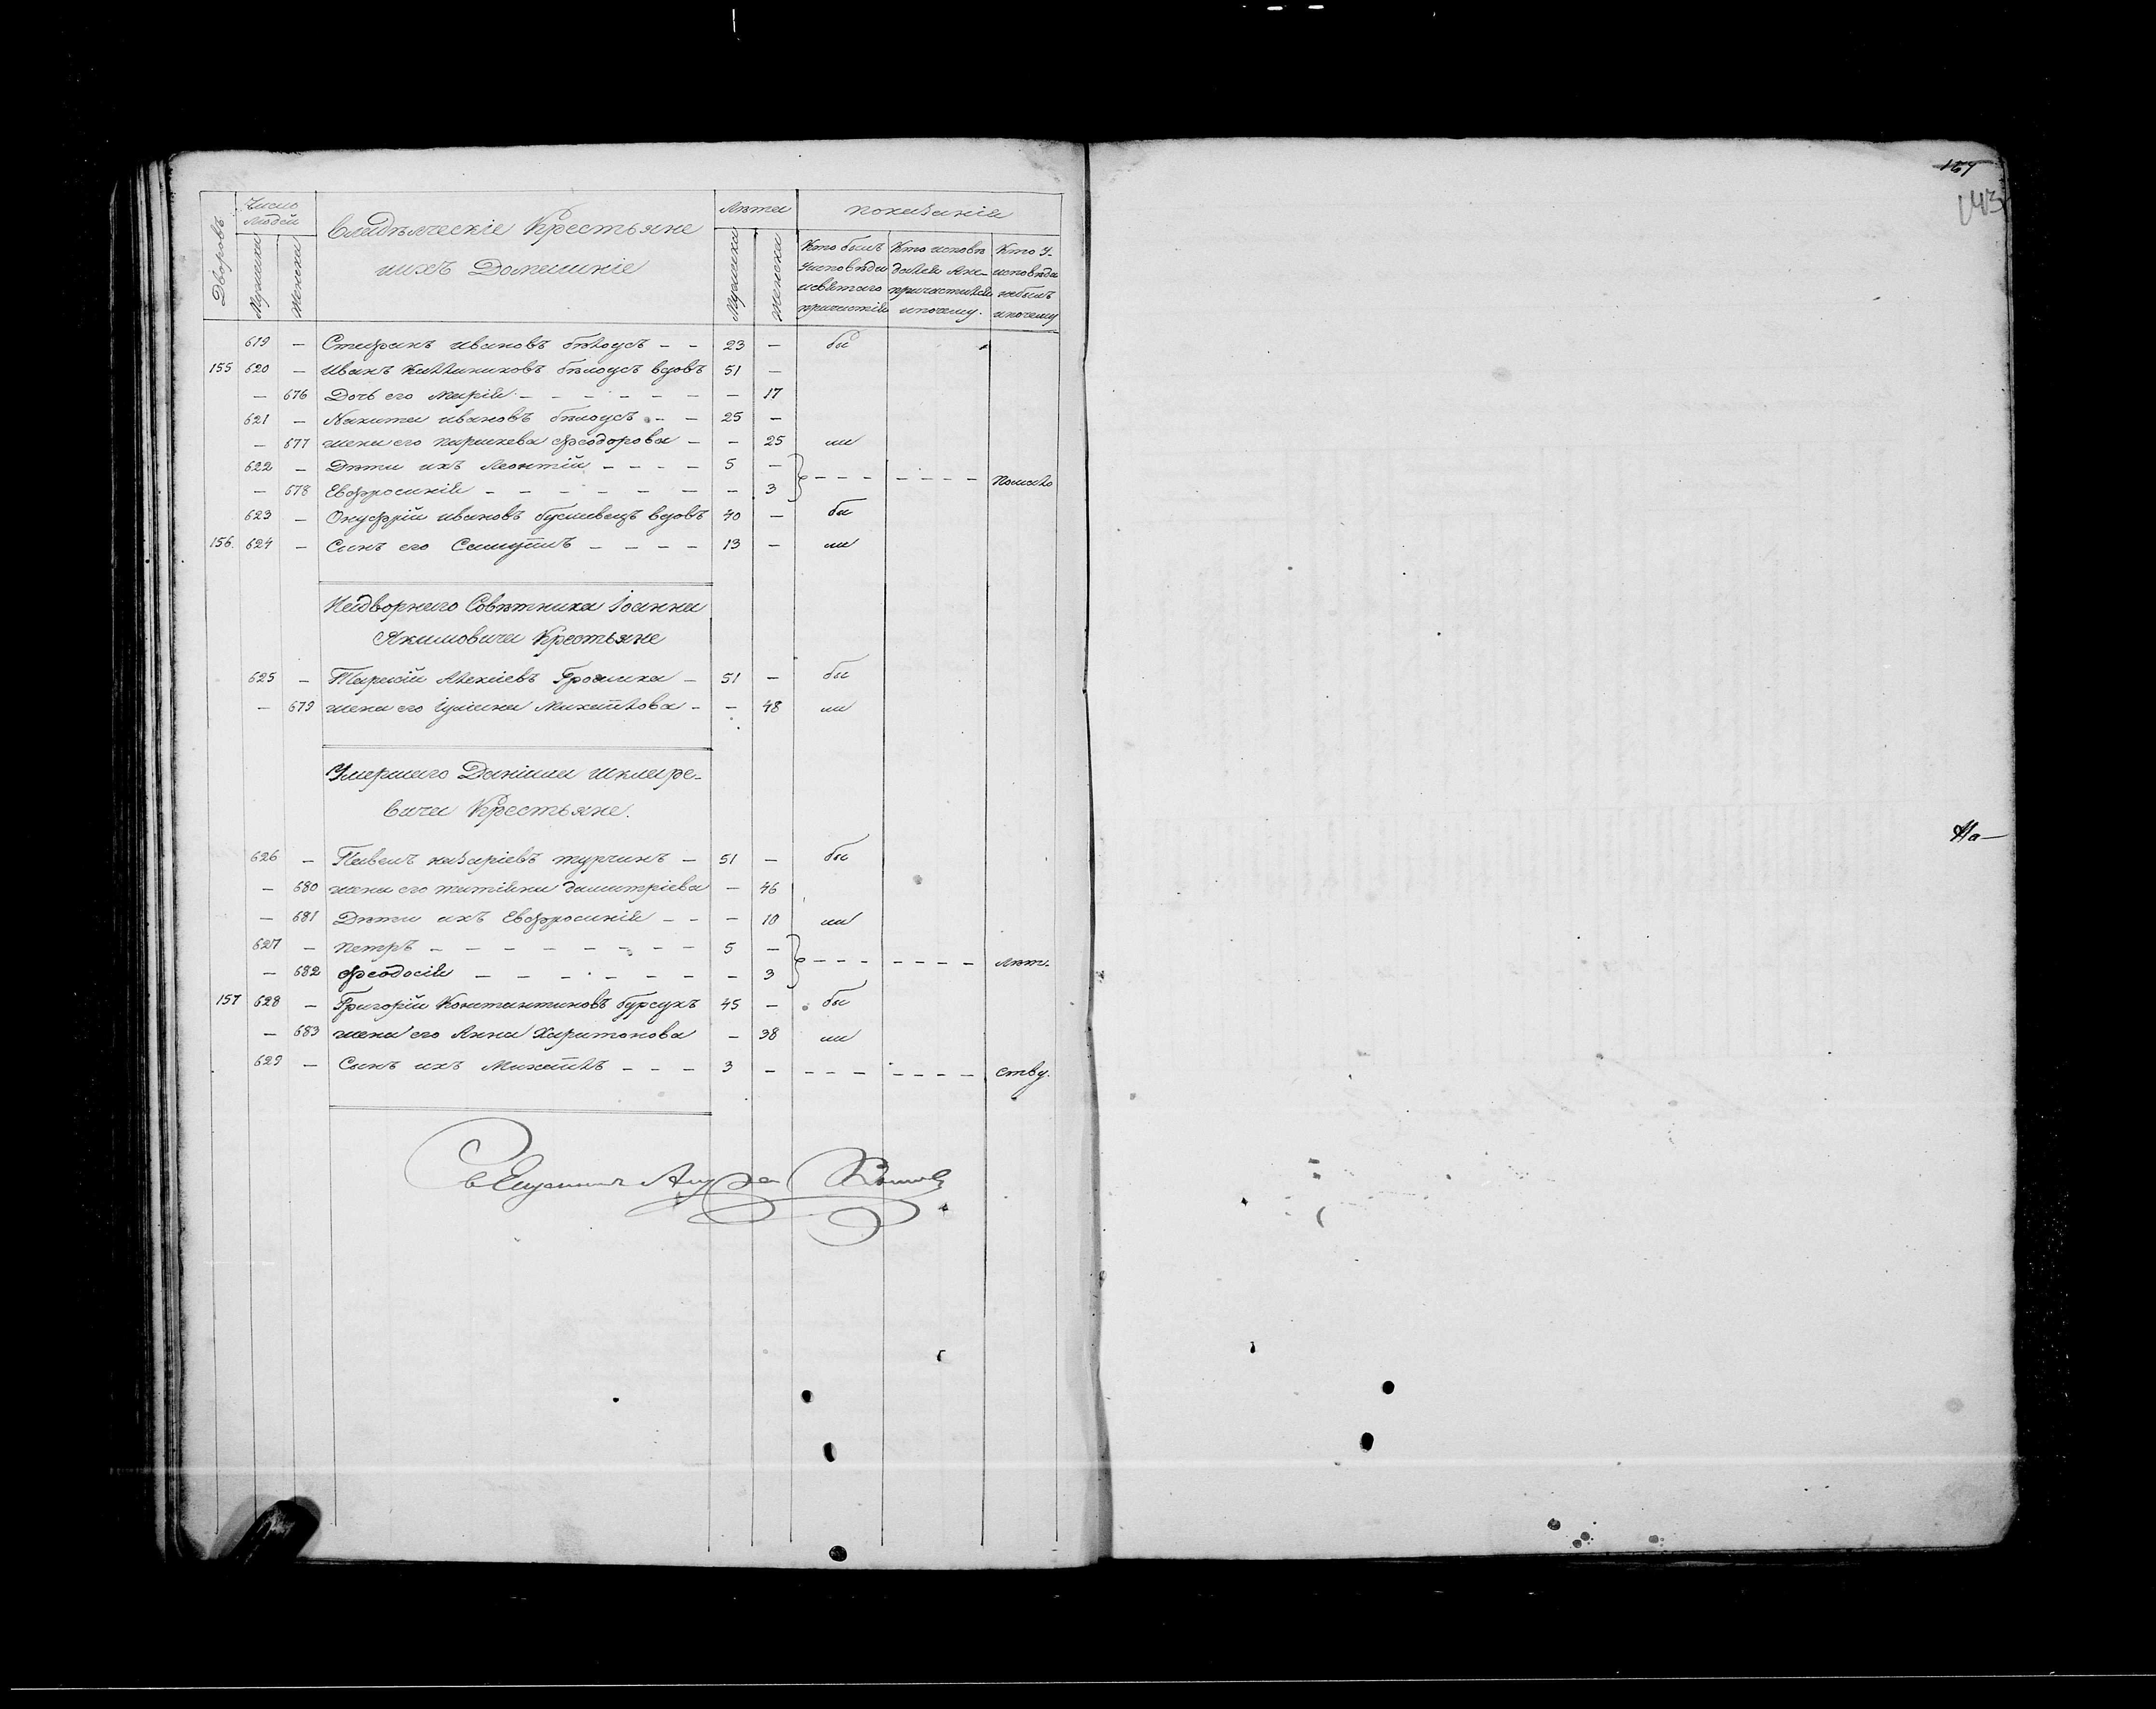 157
143
Дворовъ
Число Людей
Мужеска
Женска
Владѣлческіе Крестьяне
ихъ Домашніе
Лѣта
Мужеска
Женска
показанія
Кто былъ уисповѣди исвятаго причастія
Кто исповѣдался Ане причастился ипочему.
Кто у исповѣди небылъ ипочему
619 — Стефанъ ивановъ бѣлоусъ — — 23 — бы
155 620 — иванъ Каллиниковъ бѣлоусъ вдовъ 51 —
— 676 Дочь его Марія — — — — — — — 17
621 — Никита ивановъ бѣлоусъ — — 25 —
— 677 жена его параскева феодорова — — 25 ли
622 — Дѣти ихъ Леонтій — — — — 5 —
— 678 Евфросинія — — — — — — — — 3 — — — — — — — Помало
623 — Онуфрій ивановъ вдовъ 40 — бы
156. 624 — Сынъ его Самуилъ — — — — 13 — ли
Надворнаго Совѣтника Іоанна
Якимовича Крестьяне
625 — Тарасій Алексіевъ — 51 — бы
— 679 жена его Михайлова — — 48 ли
Умершаго Даніила шкляре-
вича Крестьяне.
626 — Павелъ назаріевъ турчинъ — 51 — бы
— 680 жена его татіяна димитріева — 46
— 681 Дѣти ихъ Евфросинія — — — 10 ли
627 — петръ — — — — — — — — 5 —
— 682 феодосія — — — — — — — — 3 — — — — — — — лѣт-
157 628 — Григорій Константиновъ бурсукъ 45 — бы
— 683 жена его Анна Харитонова — 38 ли
629 — Сынъ ихъ Михаилъ — — — 3 — — — — — — — — ству.
На—